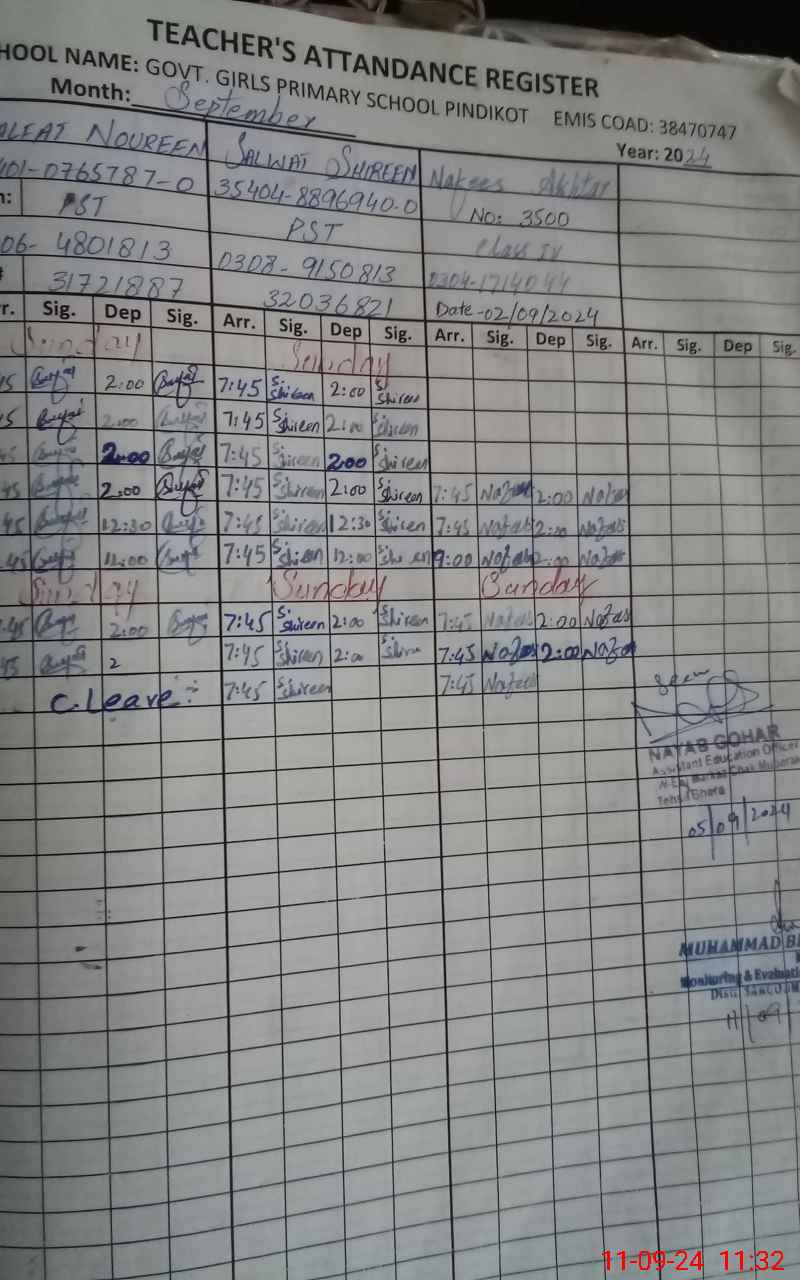 TEACHER'S ATTANDANCE REGISTER
HOOL NAME: GOVT. GIRLS PRIMARY SCHOOL PINDIKOT EMIS COAD: 38470747
Month: September Year: 2024
NOUREEN SALWAT SHIREEN Nafees Akhtar
101-0765787-0 35404-8896940-0 No: 3500
PST PST Class IV
06-4801813 0308-9150813 0304-1714044
31721887 32036821 Date-02/09/2024
r. Sig. Dep Sig. Arr. Sig. Dep Sig. Arr. Sig. Dep Sig. Arr. Sig. Dep Sig.
Sunday Sunday
45 2:00 7:45 S. Shireen 2:00 S. Shireen
45 2:00 7:45 S. Shireen 2:00 S. Shireen
45 2:00 7:45 S. Shireen 2:00 S. Shireen
45 2:00 7:45 S. Shireen 2:00 S. Shireen 7:45 Nafees 2:00 Nafees
45 12:30 7:45 S. Shireen 12:30 S. Shireen 7:45 2:00
45 12:00 7:45 S. Shireen 12:00 9:00 2:00
Sunday Sunday Sunday
:45 2:00 7:45 S. Shireen 2:00 S. Shireen 7:45 Nafees 2:00 Nafees
45 2 7:45 S. Shireen 2:00 7:45 2:00
C.Leave:- 7:45 S. Shireen 7:45 Nafees
Seen
NAYAB GOHAR
Assistant Education Officer
05/09/2024
MUHAMMAD B
Monitoring & Evaluati
11/09
11-09-24 11:32